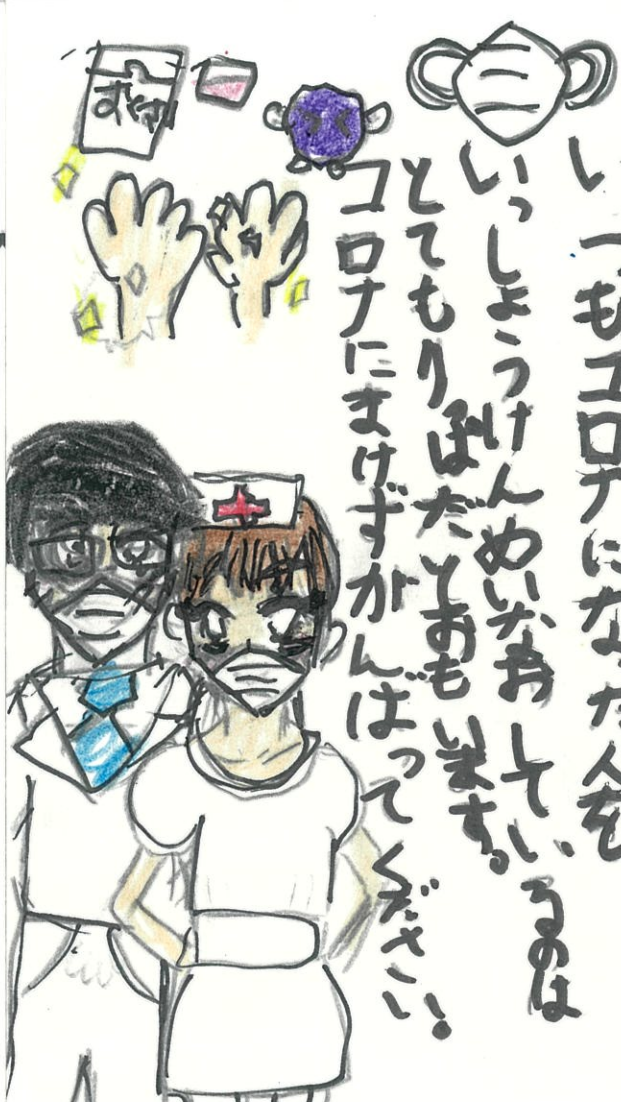 いつもコロナになった人を
いっしょうけんめいなおしているのは
とても だとおもいます。
コロナにまけずがんばってください。